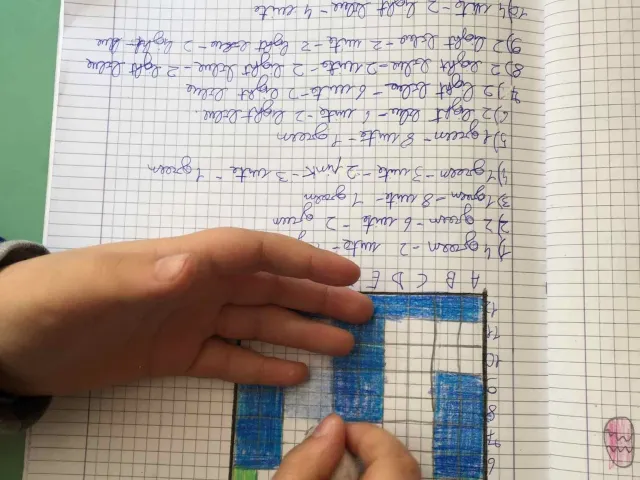 6
7
8
9
10
11
12
A B C D E
1) 4 green - 2 wite -
2) 2 green - 6 wite - 2 green
3) 1 green - 8 wite - 1 green
4) 1 green - 3 wite - 2 pink - 3 wite - 1 green
5) 1 green - 8 wite - 1 green
6) 2 light blue - 6 wite - 2 light blue.
7) 2 light blue - 6 wite - 2 light blue
8) 2 light blue - 2 wite - 2 light blue - 2 light blue
9) 2 light blue - 2 wite - 2 light blue - 2 light blue
10) 4 wite - 2 light blue - 4 wite